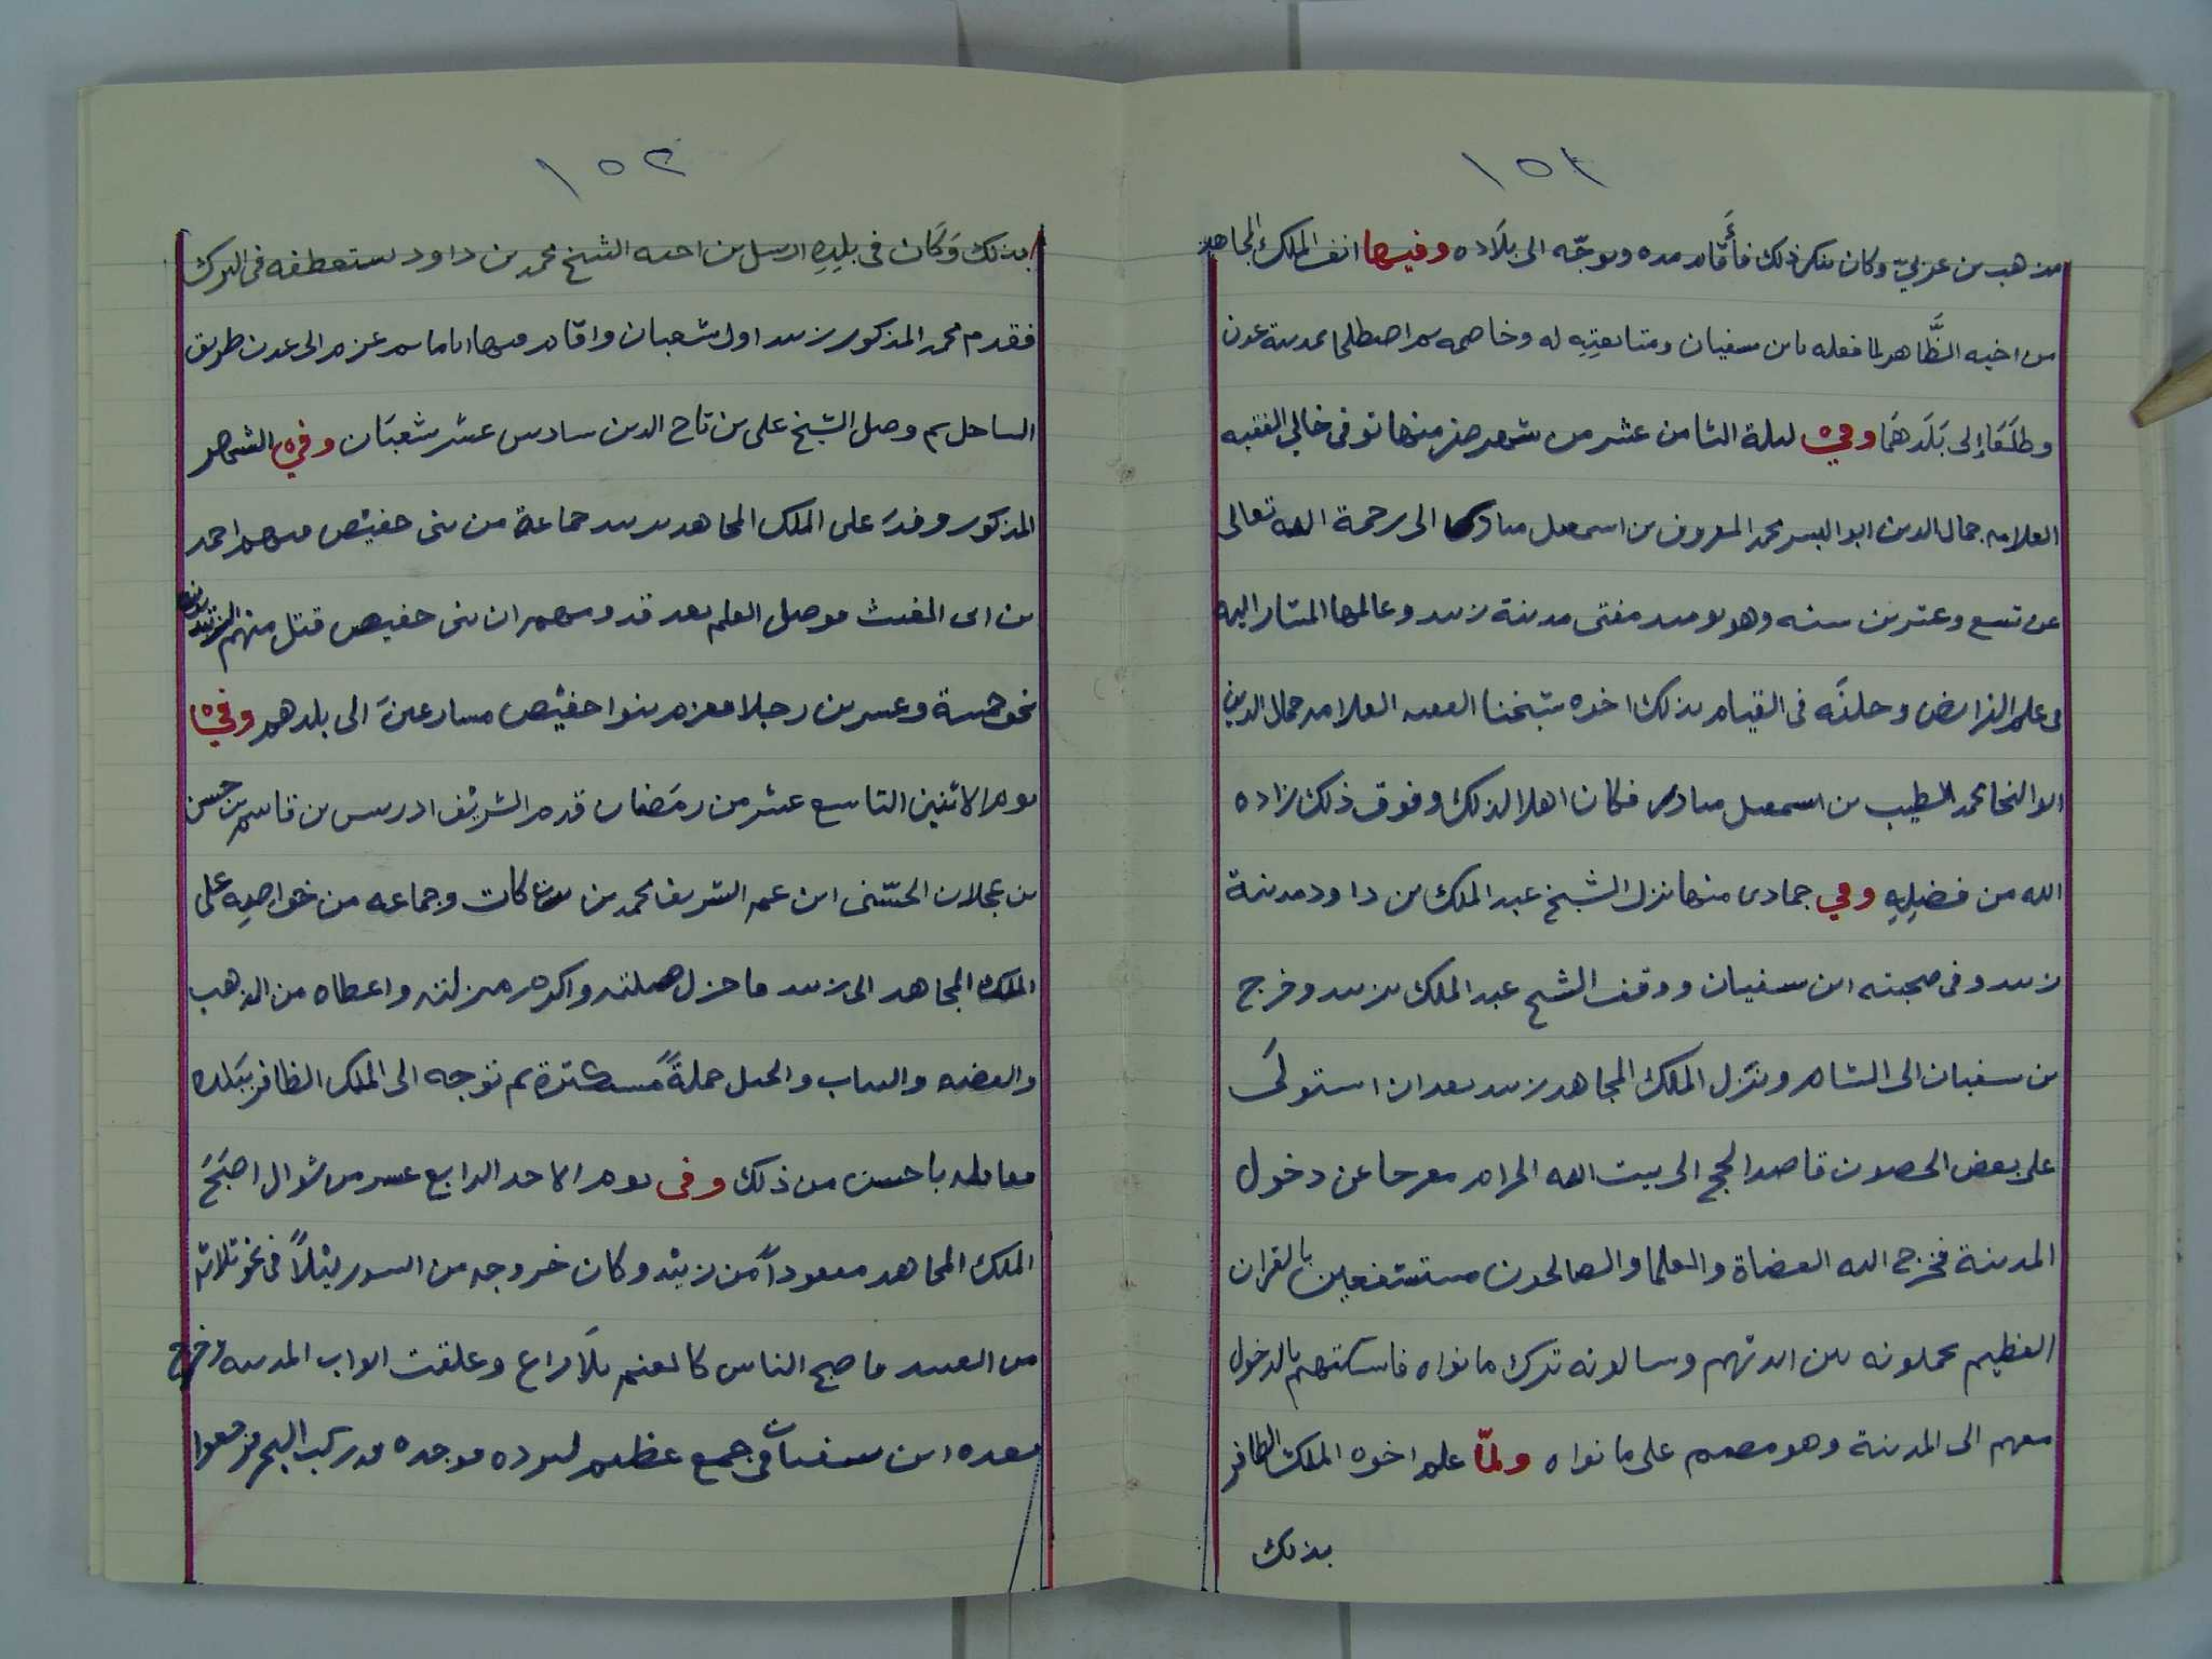 ١٥١
مذهب بن عربيّ وكان ينكر ذلك فأقام مده وتوجّه الى بلاده وفيها انف الملك المجاهد
من اخيه الظَّاهر لما فعله بابن سفيان ومتابعتِهِ له وخاصمه ثم اصطلحا بمدينة عدن
وطلَعَا إلى بَلَدهَما وفي ليلة الثامن عشر من شهر صفر منها توفى خالي الفقيه
العلامه جمال الدين ابو اليسر محمد المعروف بن اسمعيل مبارك الى رحمة الله تعالى
عن تسع وعشرين سنه وهو يوميد مفتى مدينة زبيد وعالمها المشار اليه
فى علم الفرايض وخلفَه فى القيام بذلك اخوه شيخنا الفقيه العلامه جمال الدين
ابو النجا محمد الطيب بن اسمعيل مبارك فكان اهلا لذلك وفوق ذلك زاده
الله من فضلِهِ وفي جمادى منها نزل الشيخ عبد الملك بن داود مدينة
زبيد وفى صحبته ابن سفيان ووقف الشيخ عبد الملك بزبيد وخرج
بن سفيان الى الشام ونزل الملك المجاهد زبيد بعد ان استولَى
على بعض الحصون قاصد الحج الى بيت الله الحرام معرجا عن دخول
المدينة فخرج اليه القضاة والعلما والصالحون مستشفعين بالقران
العظيم يحملونه بين ايديهم وسالونه ترك ما نواه فاسكتهم بالدخول
معهم الى المدينة وهو مصمم على ما نواه ولمّا علم اخوه الملك الظافر
بذلك
١٥٢
بذلك وَكَان فى بلدِهِ ارسل بن اخيه الشيخ محمد بن داود يستعطفه فى الترك
فقدم محمد المذكور زبيد اول شعبان واقام فيها اياما ثم عزم الى عدن طريق
الساحل ثم وصل الشيخ على بن تاج الدين سادس عشر شعبَان وفي الشهر
المذكور وفدَ على الملك المجاهد بزبيد جماعة من بنى حفيص منهم احمد
بن ابى الغيث فوصل العلم بعد قدومهم ان بنى حفيص قتل منهم الزيديون
نحو خمسة وعشرين رجلا فعزم بنوا حفيص مسارعينَ الى بلدهم وفي
يوم الاثنين التاسع عشر من رمَضان قدم الشريف ادريس بن قاسم بن حسن
بن عجلان الحسّنى ابن عم الشريف محمد بن بركات وجماعه من خواصِهِ على
الملك المجاهد الى زبيد فاجزل صلته واكرم منزلته واعطاه من الذهب
والفضه والثياب والخيل جملةً مستكثرة ثم توجه الى الملك الظافر ببَلده
فعامله باحسن من ذلك وفى يوم الاحد الرابع عشر من شوال اصبَحَ
الملك المجاهد مفقوداً من زبيد وكان خروجه من السور ليْلاً فى نحو ثلاثه
من العبيد فاصبح الناس كالغنم بلَاراع وغلقت ابواب المدينه وخرج
بعده ابن سفيان فى جمع عظيم ليرده فوجده قد ركب البحر فرجعوا